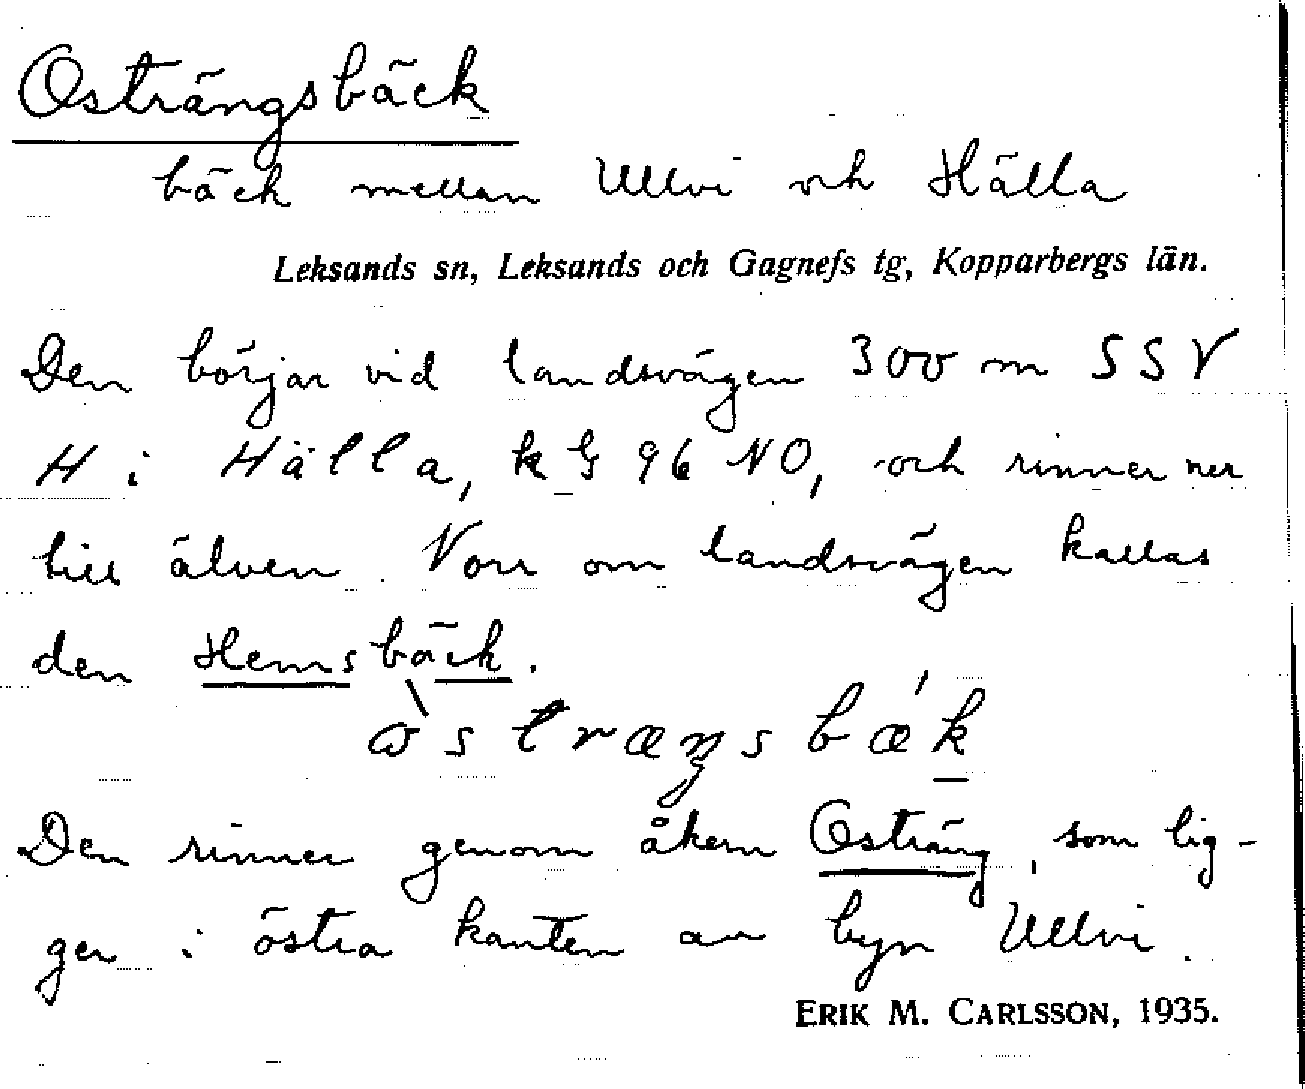 Osträngsbäck
bäck mellan Ullvi och Hälla
Leksands sn, Leksands och Gagnefs tg, Kopparbergs län.
Den börjar vid landsvägen 300 m SSV
H i Hälla, k G 96 NO, och rinner ner
till älven. Norr om landsvägen kallas
den Hemsbäck.
Den rinner genom åkern Osträng, som lig-
ger i östra kanten av byn Ullvi.
ERIK M. CARLSSON, 1935.